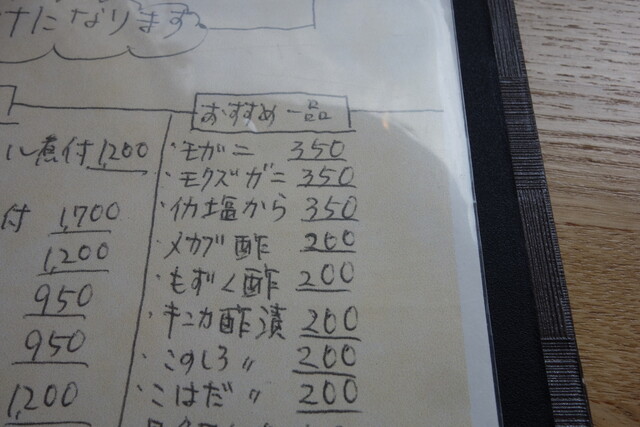 けになります
おすすめ一品
ル煮付 1,200
付 1,700
1,200
950
950
1,200
・モガニ 350
・モクズガニ 350
・イカ塩から 350
・メカブ酢 200
・もずく酢 200
・キニカ酢漬 200
・このしろ 〃 200
・こはだ 〃 200